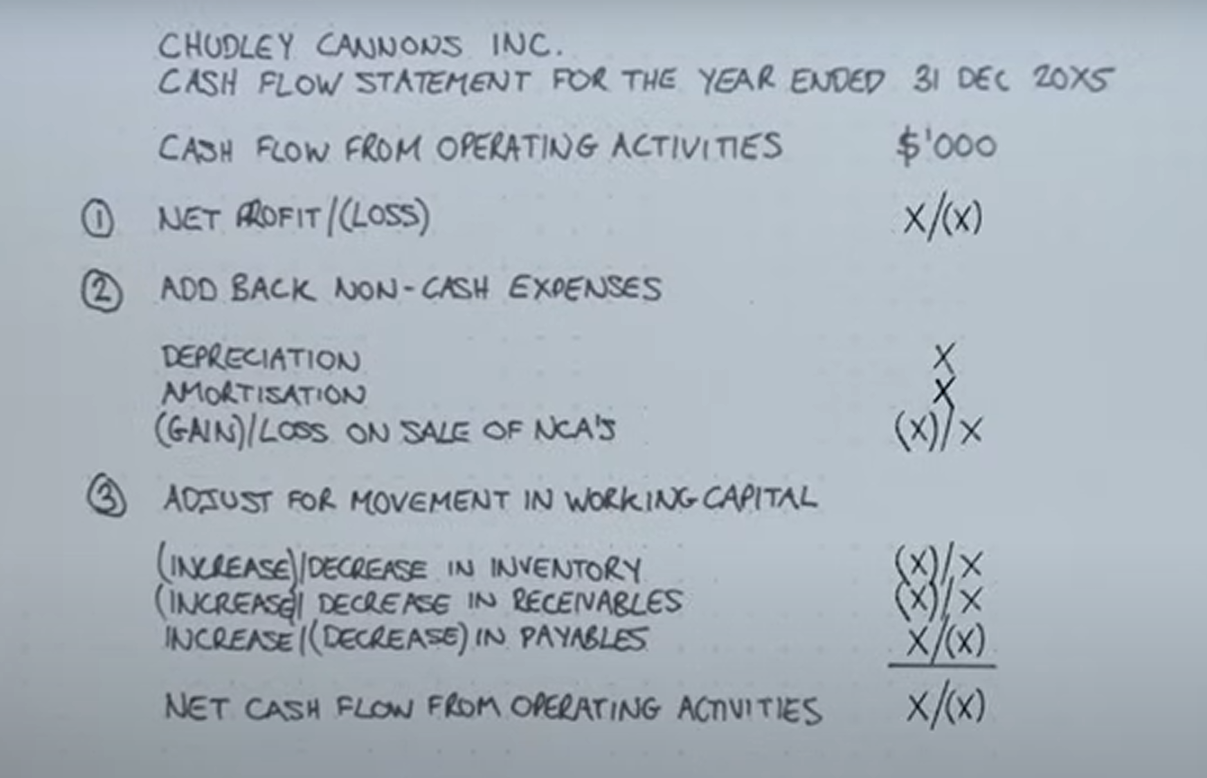 CHUDLEY CANNONS INC.
CASH FLOW STATEMENT FOR THE YEAR ENDED 31 DEC 20X5
CASH FLOW FROM OPERATING ACTIVITIES $'000
① NET PROFIT/(LOSS) X/(X)
② ADD BACK NON-CASH EXPENSES
DEPRECIATION X
AMORTISATION X
(GAIN)/LOSS ON SALE OF NCA'S (X)/X
③ ADJUST FOR MOVEMENT IN WORKING CAPITAL
(INCREASE)/DECREASE IN INVENTORY (X)/X
(INCREASE)/DECREASE IN RECEIVABLES (X)/X
INCREASE/(DECREASE) IN PAYABLES X/(X)
NET CASH FLOW FROM OPERATING ACTIVITIES X/(X)